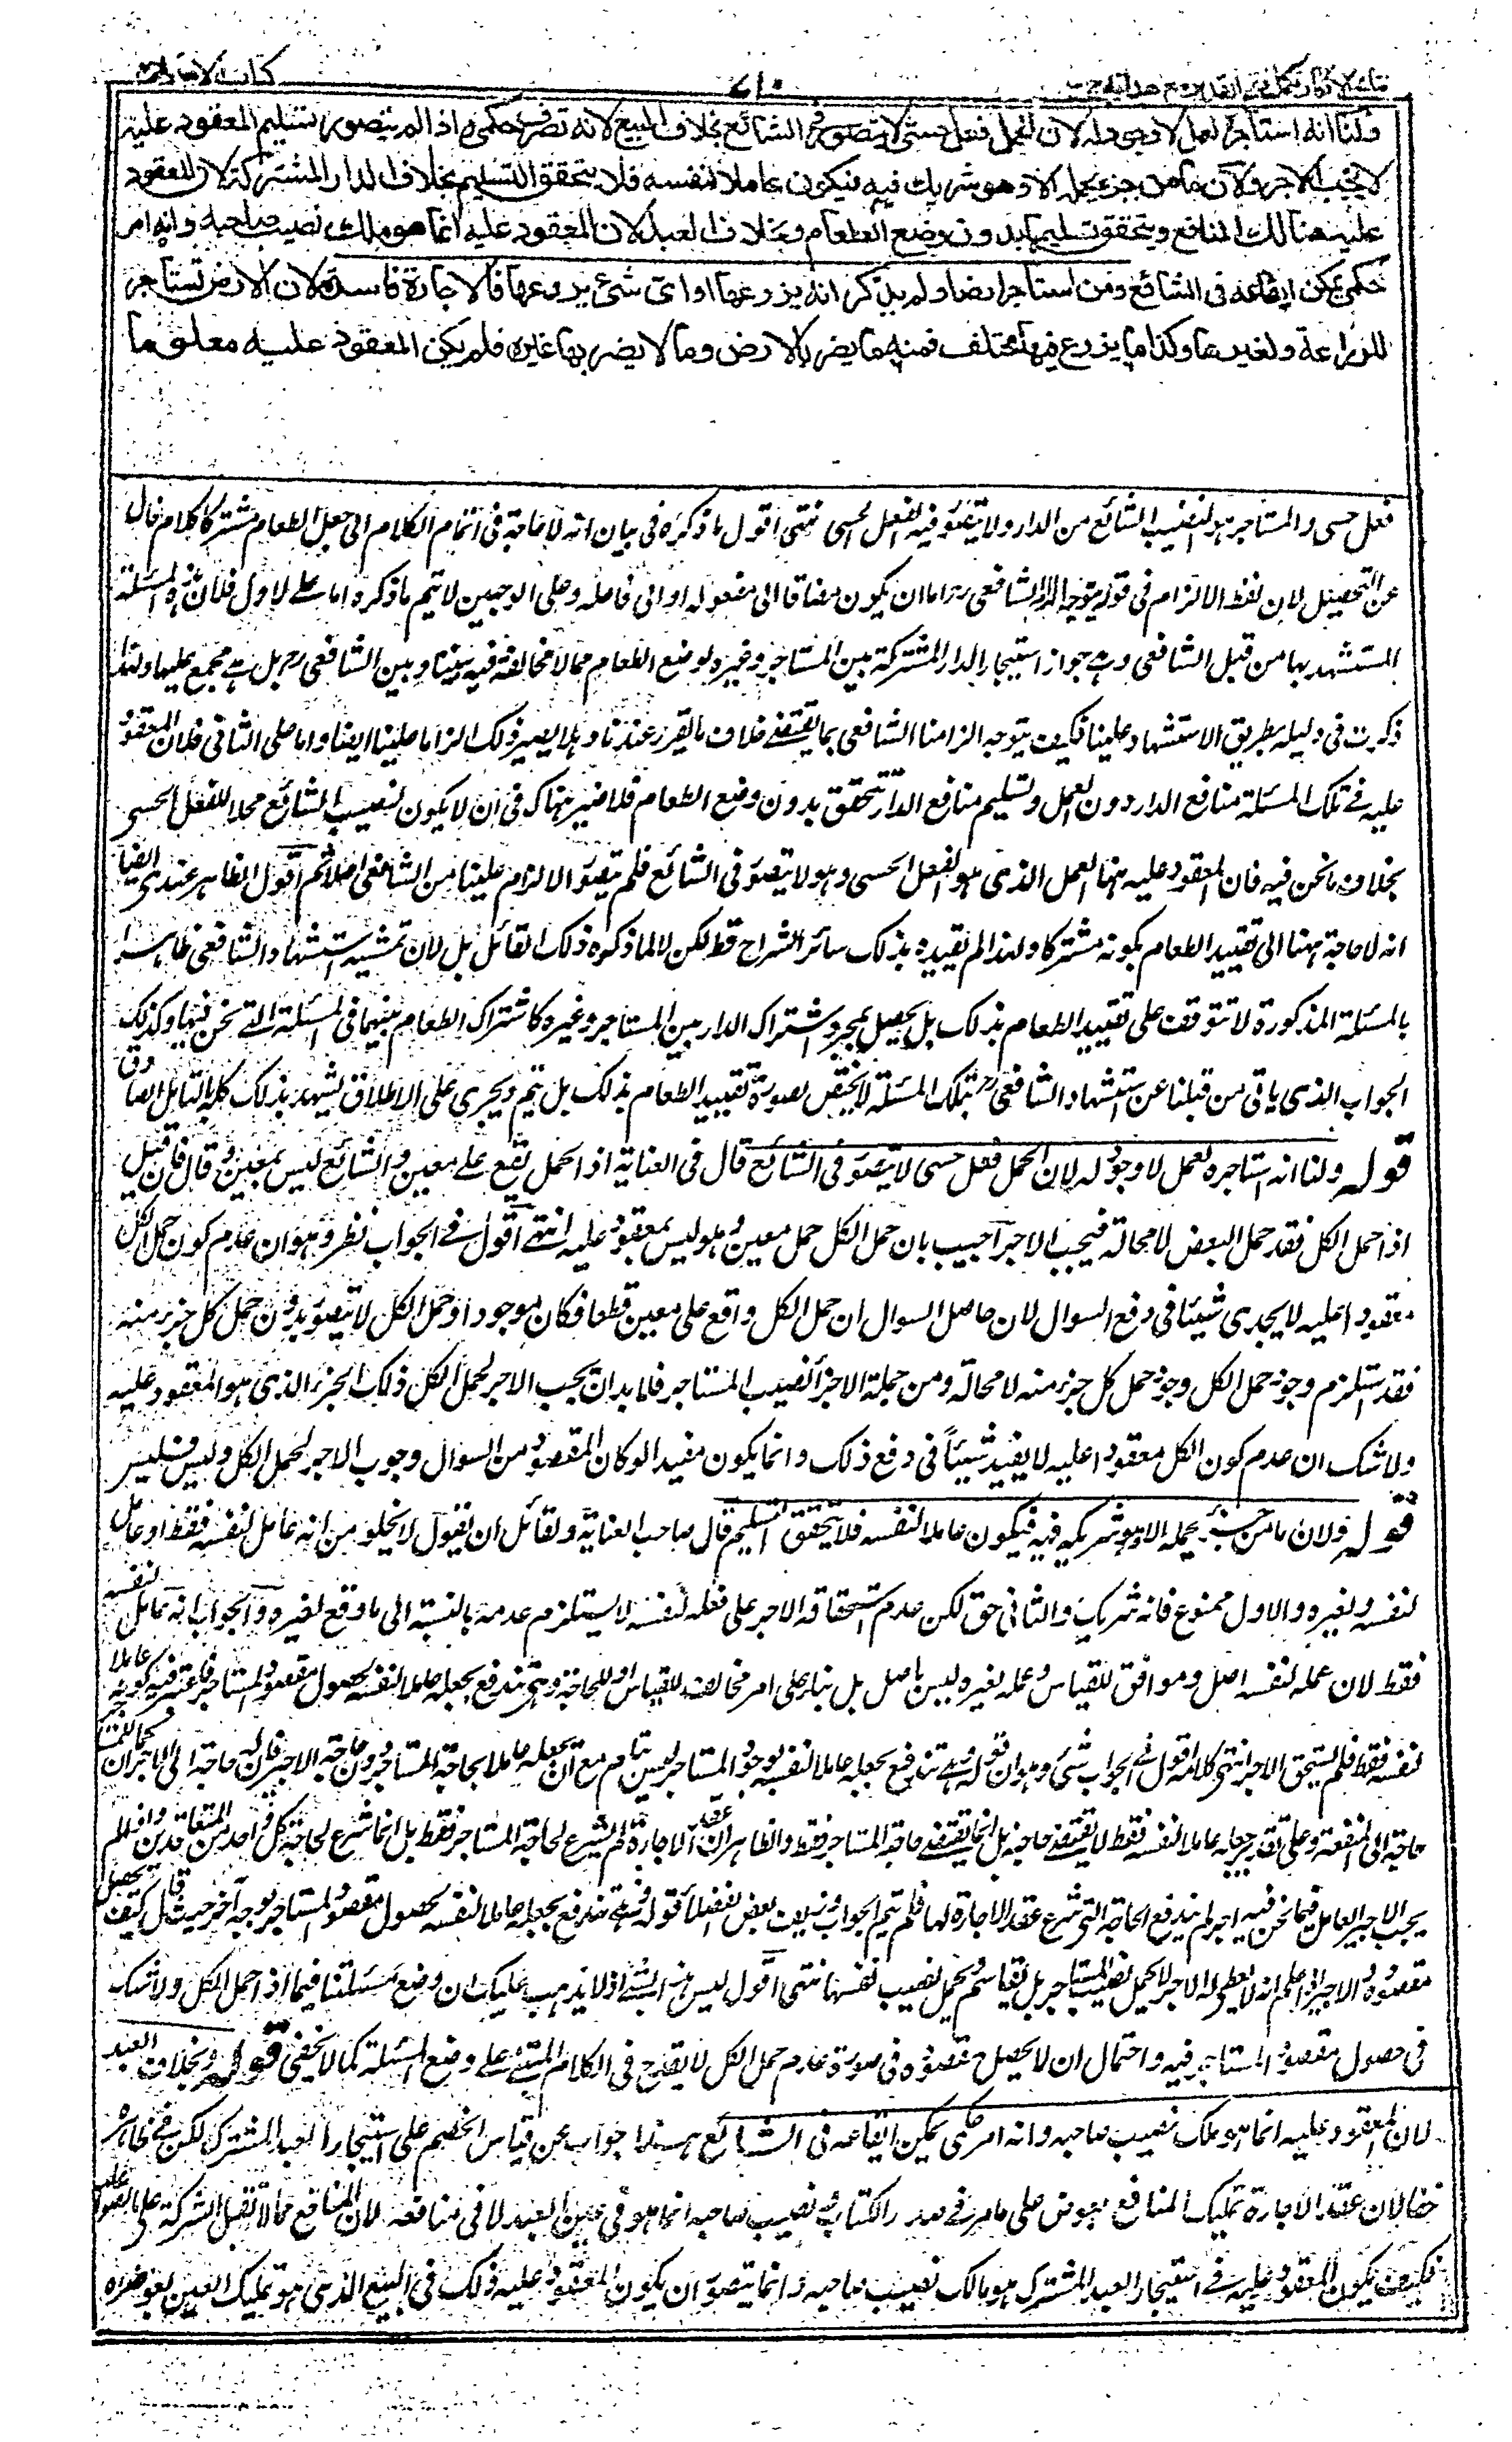 نتائج الافكار تكملة فتح القدير مع هداية ج ٣
٧١٠
كتاب الاجارات
ولنا انه استاجره لعمل لا وجود له لان الحمل فعل حسي لا يتصور في الشائع بخلاف البيع لانه تصرف حكمي واذا لم يتصور تسليم المعقود عليه
لا يجب الاجر ولان ما من جزء يحمله الا وهو شريك فيه فيكون عاملا لنفسه فلا يتحقق التسليم بخلاف الدار المشتركة لان المعقود
عليه هنالك المنافع ويتحقق تسليمها بدون وضع الطعام وبخلاف العبد لان المعقود عليه انما هو ملك نصيب صاحبه وانه امر
حكمي يمكن ايقاعه في الشائع ومن استاجر ارضا ولم يذكر انه يزرعها او اي شيء يزرعها فالاجارة فاسدة لان الارض تستاجر
للزراعة ولغيرها وكذا ما يزرع فيها مختلف فمنه ما يضر بالارض وما لا يضر بها غيره فلم يكن المعقود عليه معلوما
فعل حسي والمستاجر هو النصيب الشائع من الدار ولا يتصور فيه الفعل الحسي انتهى اقول ما ذكره في بيان انه لا حاجة في اتمام الكلام الى جعل الطعام مشتركا كلام خال
عن التحصيل لان لفظ الالزام في قوله يتوجه الزام الشافعي رح اما ان يكون مضافا الى مفعوله او الى فاعله وعلى الوجهين لا يتم ما ذكره اما على الاول فلان هذه المسئلة
المستشهد بها من قبل الشافعي وهي جواز استيجار الدار المشتركة بين المستاجر وغيره لوضع الطعام مما لا مخالفة فيه بيننا وبين الشافعي رح بل هي مجمع عليها ولهذا
ذكرت في دليله بطريق الاستشهاد علينا فكيف يتوجه الزامنا الشافعي بما يقتضي خلاف ما تقرر عندنا وهلا يصير ذلك الزاما علينا ايضا واما على الثاني فلان المعقود
عليه في تلك المسئلة منافع الدار دون العمل وتسليم منافع الدار يتحقق بدون وضع الطعام فلا ضير هناك في ان لا يكون النصيب الشائع محلا للفعل الحسي
بخلاف ما نحن فيه فان المعقود عليه هنا العمل الذي هو الفعل الحسي وهو لا يتصور في الشائع فلم يتصور الالزام علينا من الشافعي اصلا ثم اقول الظاهر عندي ايضا
انه لا حاجة ههنا الى تقييد الطعام بكونه مشتركا ولهذا لم يقيده بذلك سائر الشراح قط لكن لا لما ذكره ذلك القائل بل لان تمشية استشهاد الشافعي ظاهرا
بالمسئلة المذكورة لا تتوقف على تقييد الطعام بذلك بل يحصل بمجرد اشتراك الدار بين المستاجر وغيره كاشتراك الطعام بينهما في المسئلة التي نحن فيها وكذلك
الجواب الذي ياتي من قبلنا عن استشهاد الشافعي رح بتلك المسئلة لا يختص بصورة تقييد الطعام بذلك بل يتم ويجري على الاطلاق يشهد بذلك كله التامل الصادق
قوله ولنا انه استاجره لعمل لا وجود له لان الحمل فعل حسي لا يتصور في الشائع قال في العناية اذ الحمل يقع على معين والشائع ليس بمعين وقال فان قيل
اذا حمل الكل فقد حمل البعض لا محالة فيجب الاجر اجيب بان حمل الكل حمل معين وهو ليس بمعقود عليه انتهى اقول في الجواب نظر وهو ان عدم كون حمل الكل
معقودا عليه لا يجدي شيئا في دفع السوال لان حاصل السوال ان حمل الكل واقع على معين قطعا فكان موجودا وحمل الكل لا يتصور بدون حمل كل جزء منه
فقد استلزم وجود حمل الكل وجود حمل كل جزء منه لا محالة ومن جملة الاجزاء نصيب المستاجر فلا بد ان يجب الاجر لحمل الكل ذلك الجزء الذي هو المعقود عليه
ولا شك ان عدم كون الكل معقودا عليه لا يفيد شيئا في دفع ذلك وانما يكون مفيدا لو كان المقصود من السوال وجوب الاجر لحمل الكل وليس فليس
قوله ولان ما من جزء يحمله الا وهو شريكه فيه فيكون عاملا لنفسه فلا يتحقق التسليم قال صاحب العناية ولقائل ان يقول لا يخلو من انه عامل لنفسه فقط او عامل
لنفسه ولغيره والاول ممنوع فانه شريك والثاني حق لكن عدم استحقاقه الاجر على فعله لنفسه لا يستلزم عدمه بالنسبة الى ما وقع لغيره والجواب انه عامل لنفسه
فقط لان عمله لنفسه اصل وموافق للقياس وعمله لغيره ليس باصل بل بناء على امر مخالف للقياس وللحاجة وهي تندفع بجعله عاملا لنفسه لحصول مقصود المستاجر فاعتبر فيه كونه عاملا
لنفسه فقط فلم يستحق الاجر انتهى كلامه اقول في الجواب شيء وهو ان قوله وهي تندفع بجعله عاملا لنفسه لوجود المستاجر ليس بتام مع ان يجعله عاملا لحاجة المستاجر دون حاجة الاجير فان له حاجة الى الاجر كما ان للمستاجر
حاجة الى المنفعة وعلى تقدير جعله عاملا لنفسه فقط لا يقتضي حاجته بل انما يقتضي حاجة المستاجر فقط والظاهر ان عقد الاجارة لم يشرع لحاجة المستاجر فقط بل انما شرع لحاجة كل واحد من المتعاقدين واذا لم
يجب الاجر للعامل فيما نحن فيه اجر لم يندفع الحاجة التي شرع عقد الاجارة لها فلم يتم الجواب وزيف بعض الفضلاء قوله وهي تندفع بجعله عاملا لنفسه لحصول مقصود المستاجر بوجه آخر حيث قال كيف يحصل
مقصوده والاجير اذا علم انه لا يعطى له الاجر لا يحمل نصيب المستاجر بل يقاسم ويحمل نصيب نفسه انتهى اقول ليس هذا بشيء اذ لا يذهب عليك ان وضع مسئلتنا فيما اذا حمل الكل ولا شك
في حصول مقصود المستاجر فيه واحتمال ان لا يحصل مقصوده في صورة عدم حمل الكل لا يقدح في الكلام المبني على وضع المسئلة كما لا يخفى قوله وبخلاف العبد
لان المعقود عليه انما هو ملك نصيب صاحبه وانه امر حكمي يمكن ايقاعه في الشائع هذا جواب عن قياس الخصم على استيجار العبد المشترك لكن في ظاهره
خفاء لان عقد الاجارة تمليك المنافع بعوض على ما مر في صدر الكتاب نصيب صاحبه انما هو في عين العبد لا في منافعه لان المنافع مما لا تقبل الشركة على ما نصوا عليه
فكيف يكون المعقود عليه في استيجار العبد المشترك هو ما لك نصيب صاحبه وانما يتصور ان يكون المعقود عليه ذلك في البيع الذي هو تمليك العين بعوض